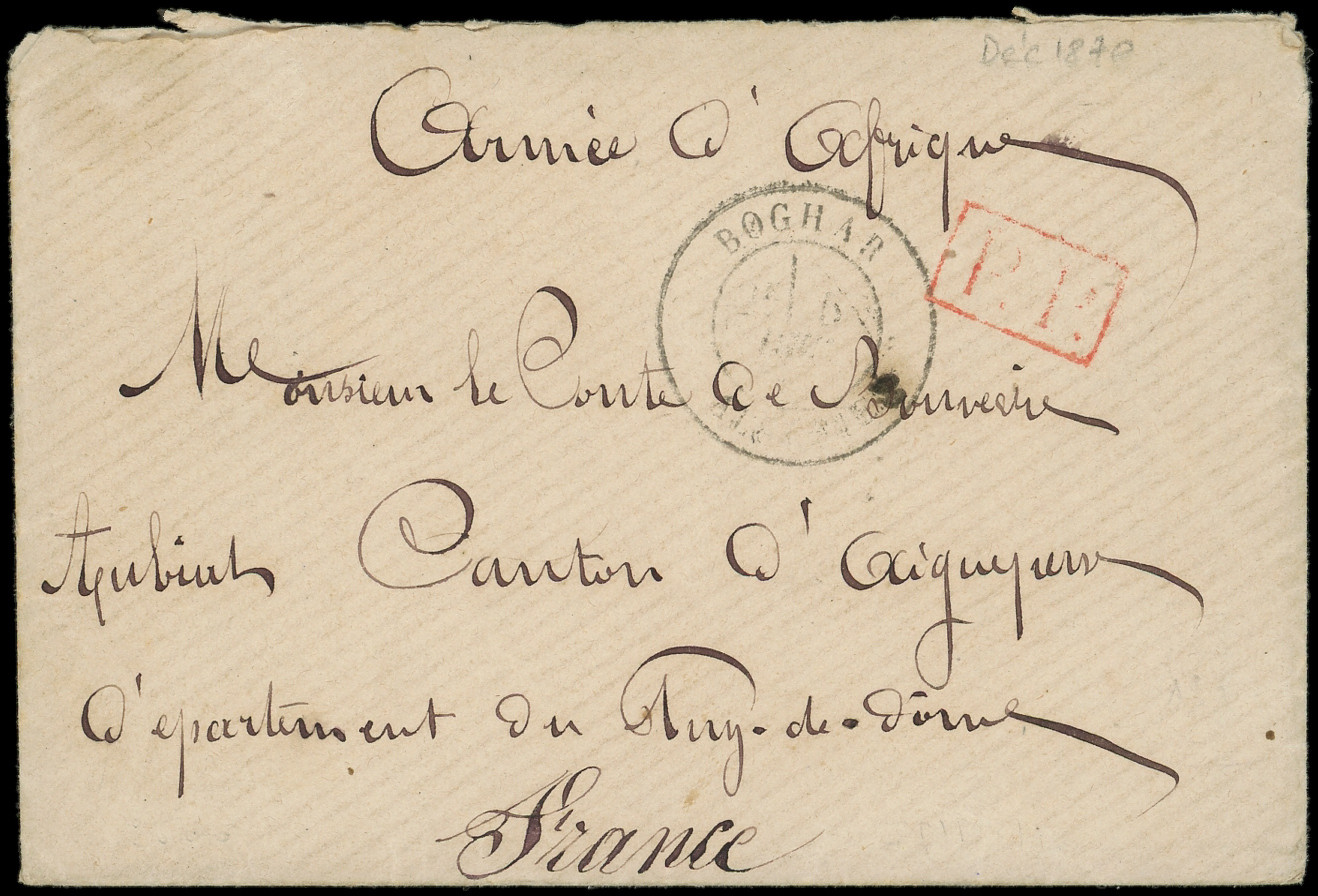 Déc 1870
Armée d'Afrique
BOGHAR
P.P.
Monsieur le Conte de
Aubiat Canton d'Aigueperse
d'épartement du Puy-de-dôme
France